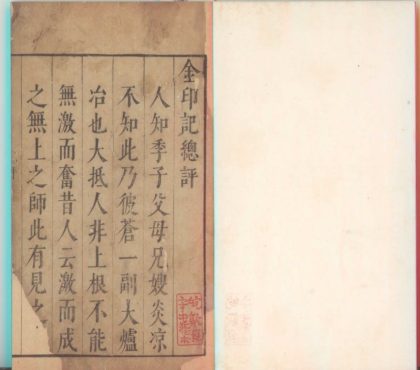 金印記總評
人知季子父母兄嫂炎凉
不知此乃彼蒼一副大爐
冶也大抵人非上根不能
無激而奮昔人云激而成
之無上之師此有見之